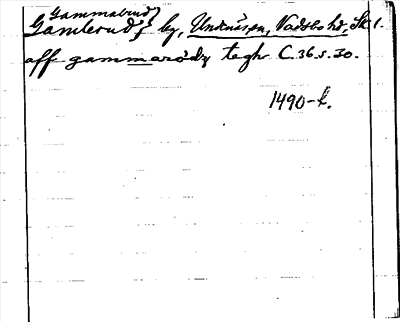 Gammalrud}
Gamlerud} by, Undenäs sn, Vadsbo hd, Sk. l.
aff gammarödy tegh C. 36. s. 30.
1490-t.